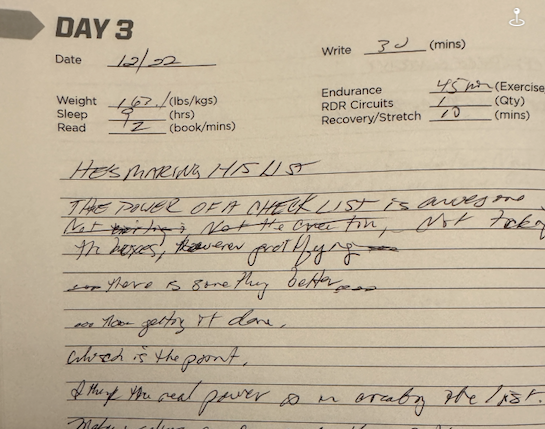 DAY 3
Date 12/22
Write 30 (mins)
Weight 163.1 (lbs/kgs)
Sleep 9 (hrs)
Read 2 (book/mins)
Endurance 45 min (Exercise
RDR Circuits 1 (Qty)
Recovery/Stretch 10 (mins)
HE'S MAKING HIS LIST
THE POWER OF A CHECK LIST is awesome
Not Not the creation, Not ticking
the boxes, however gratifying
there is something better
than getting it done.
which is the point.
I think the real power is in creating the list.